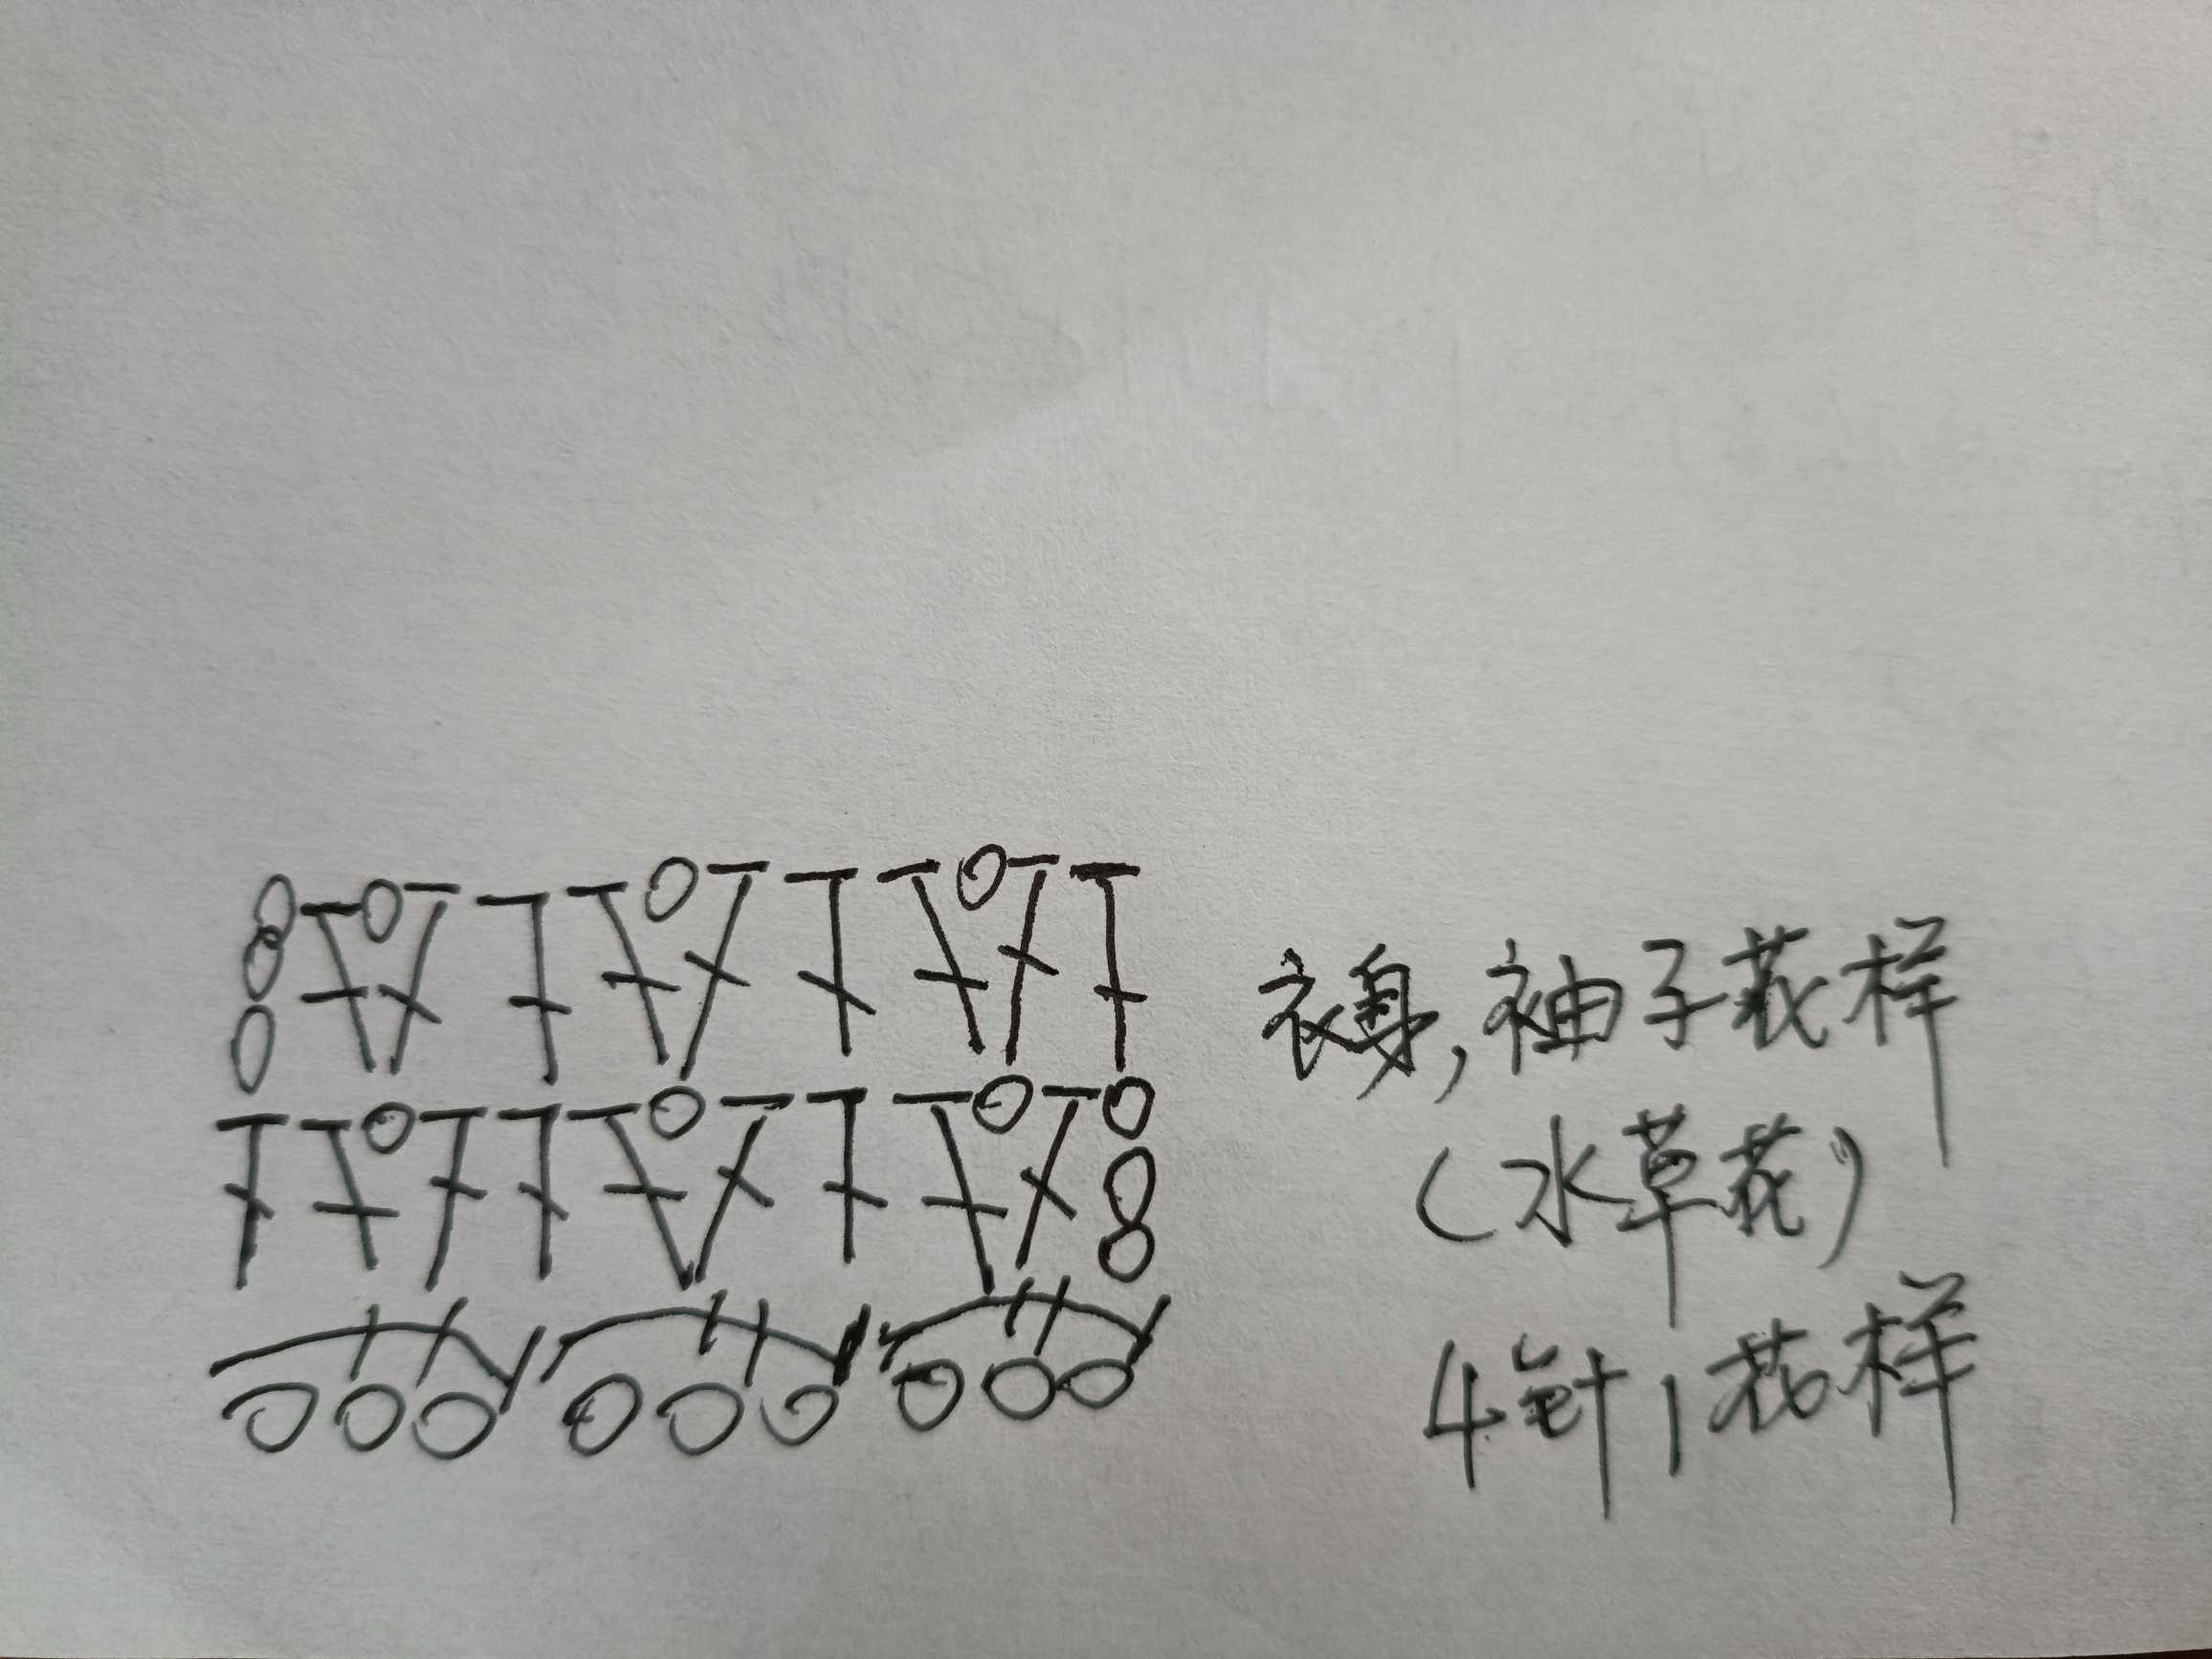 衣身,袖子花样
(水草花)
4针1花样